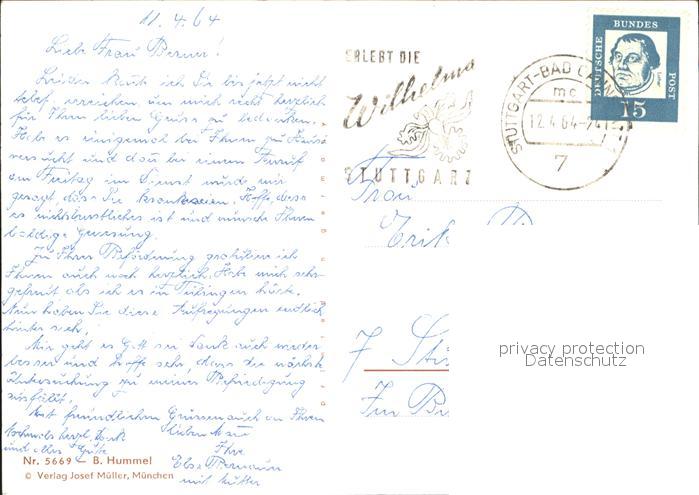 11.4.64
Liebe Frau Berner!
Leider kaum ich Sie bis jetzt nicht
telef. erreichen, um mich recht herzlich
für Ihren lieben Gruss zu bedanken.
Habe es einigemal bei Ihnen zu Hause
versucht und dann bei einem Anruf
am Freitag im Dienst wurde mir
gesagt, dass Sie krank seien. Hoffe, dass
es nichts ernstliches ist und wünsche Ihnen
baldige Genesung.
Zu Ihrer Beförderung gratuliere ich
Ihnen auch noch herzlich. Habe mich sehr
gefreut als ich es in Tübingen hörte.
Nun haben Sie diese Aufregungen endlich
hinter sich!
Mir geht es Gott sei Dank auch wieder
besser und hoffe sehr, dass die nächste
Untersuchung zu meiner Befriedigung
ausfällt.
Mit freundlichen Grüssen auch an Ihren
lieben
nochmals herzl. Dank
und alles Gute
Ihre
Else
mit Mutter
Nr. 5669 — B. Hummel
© Verlag Josef Müller, München
ERLEBT DIE
Wilhelma
STUTTGART
STUTTGART-BAD CANN
mc
12.4.64
7
DEUTSCHE
BUNDES
POST
Luther
15
Frau
Erik
7 Stu
privacy protection
Datenschutz